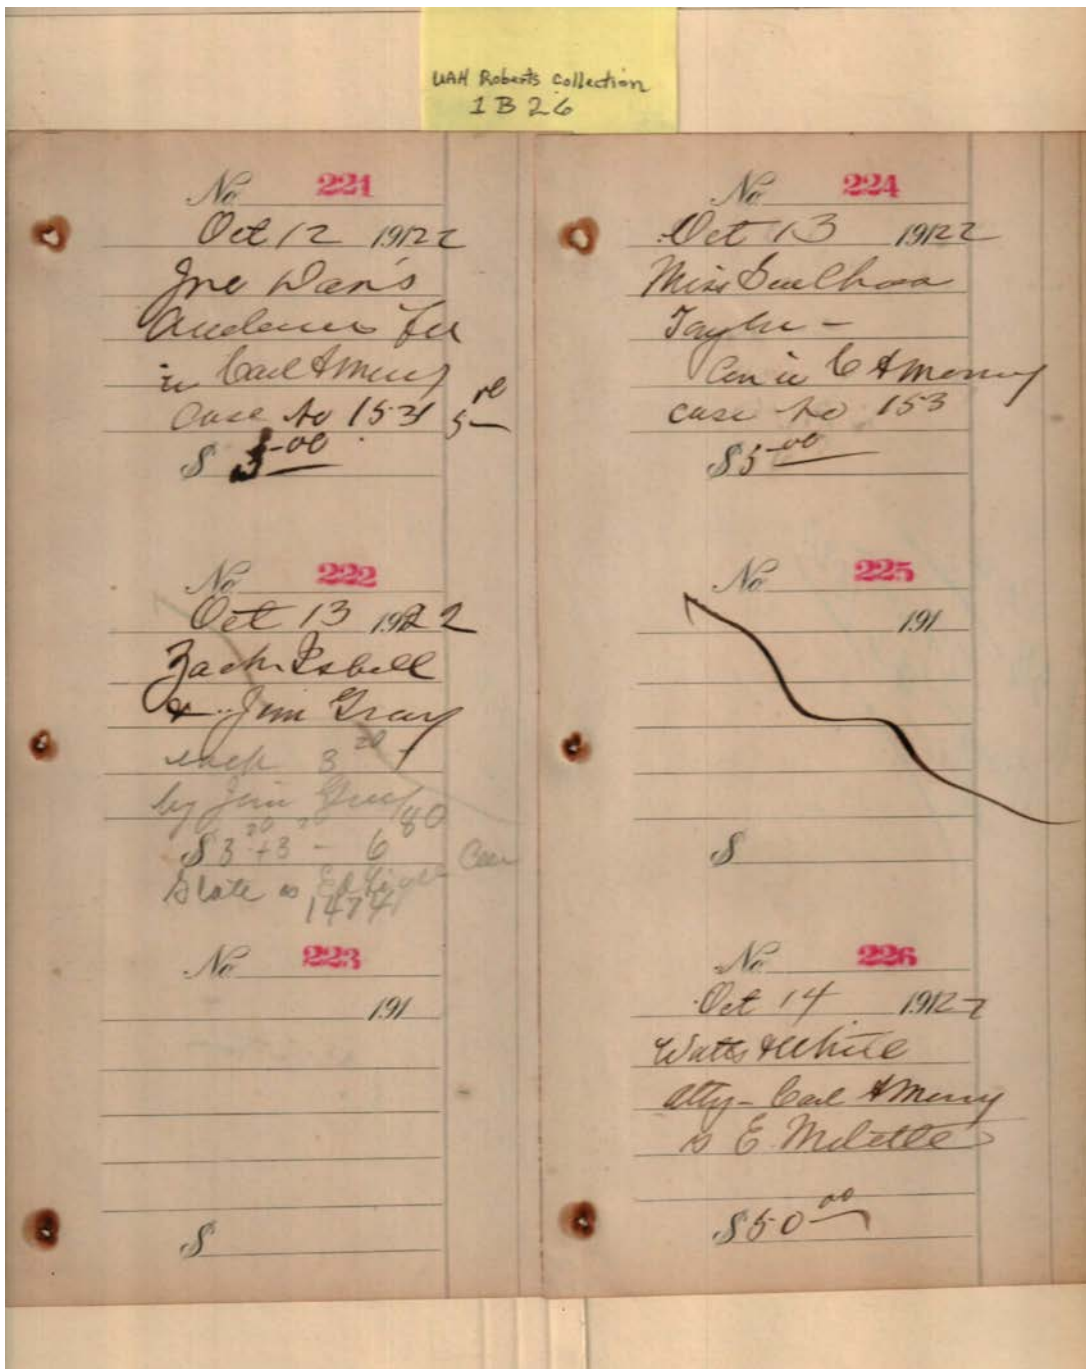 UAH Roberts Collection
1B26
No 221
Oct 12 19122
Jno Davis
fee
in Carl A Merry
case no 153
5 00
$ 5 00
No 222
Oct 13 1922
Zach Isbell
& Jim Gray
each 3 20
by Jim Gray
$ 3 + 3 - 6 80
State vs
1474
No 223
191
$
No 224
Oct 13 19122
Miss
Taylor -
in C A Merry
case no 153
$ 5 00
No 225
191
$
No 226
Oct 14 19122
Watts & White
Atty - Carl A Merry
vs E
$ 50 00